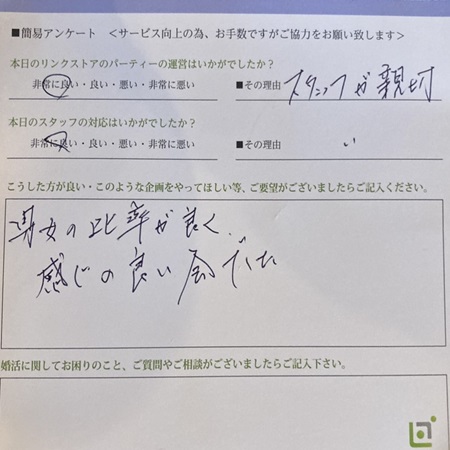 ■簡易アンケート ＜サービス向上の為、お手数ですがご協力をお願い致します＞
本日のリンクストアのパーティーの運営はいかがでしたか？
非常に良い・良い・悪い・非常に悪い ■その理由 スタッフが親切
本日のスタッフの対応はいかがでしたか？
非常に良い・良い・悪い・非常に悪い ■その理由 〃
こうした方が良い・このような企画をやってほしい等、ご要望がございましたらご記入ください。
男女の比率が良く、
感じの良い会でした
婚活に関してお困りのこと、ご質問やご相談がございましたらご記入下さい。